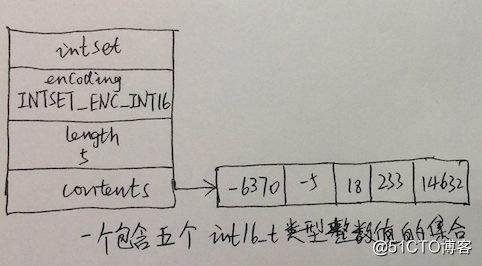 intset
encoding
INTSET_ENC_INT16
length
5
contents
-6370 -5 18 233 14632
一个包含五个 int16_t 类型整数值的集合
@51CTO博客